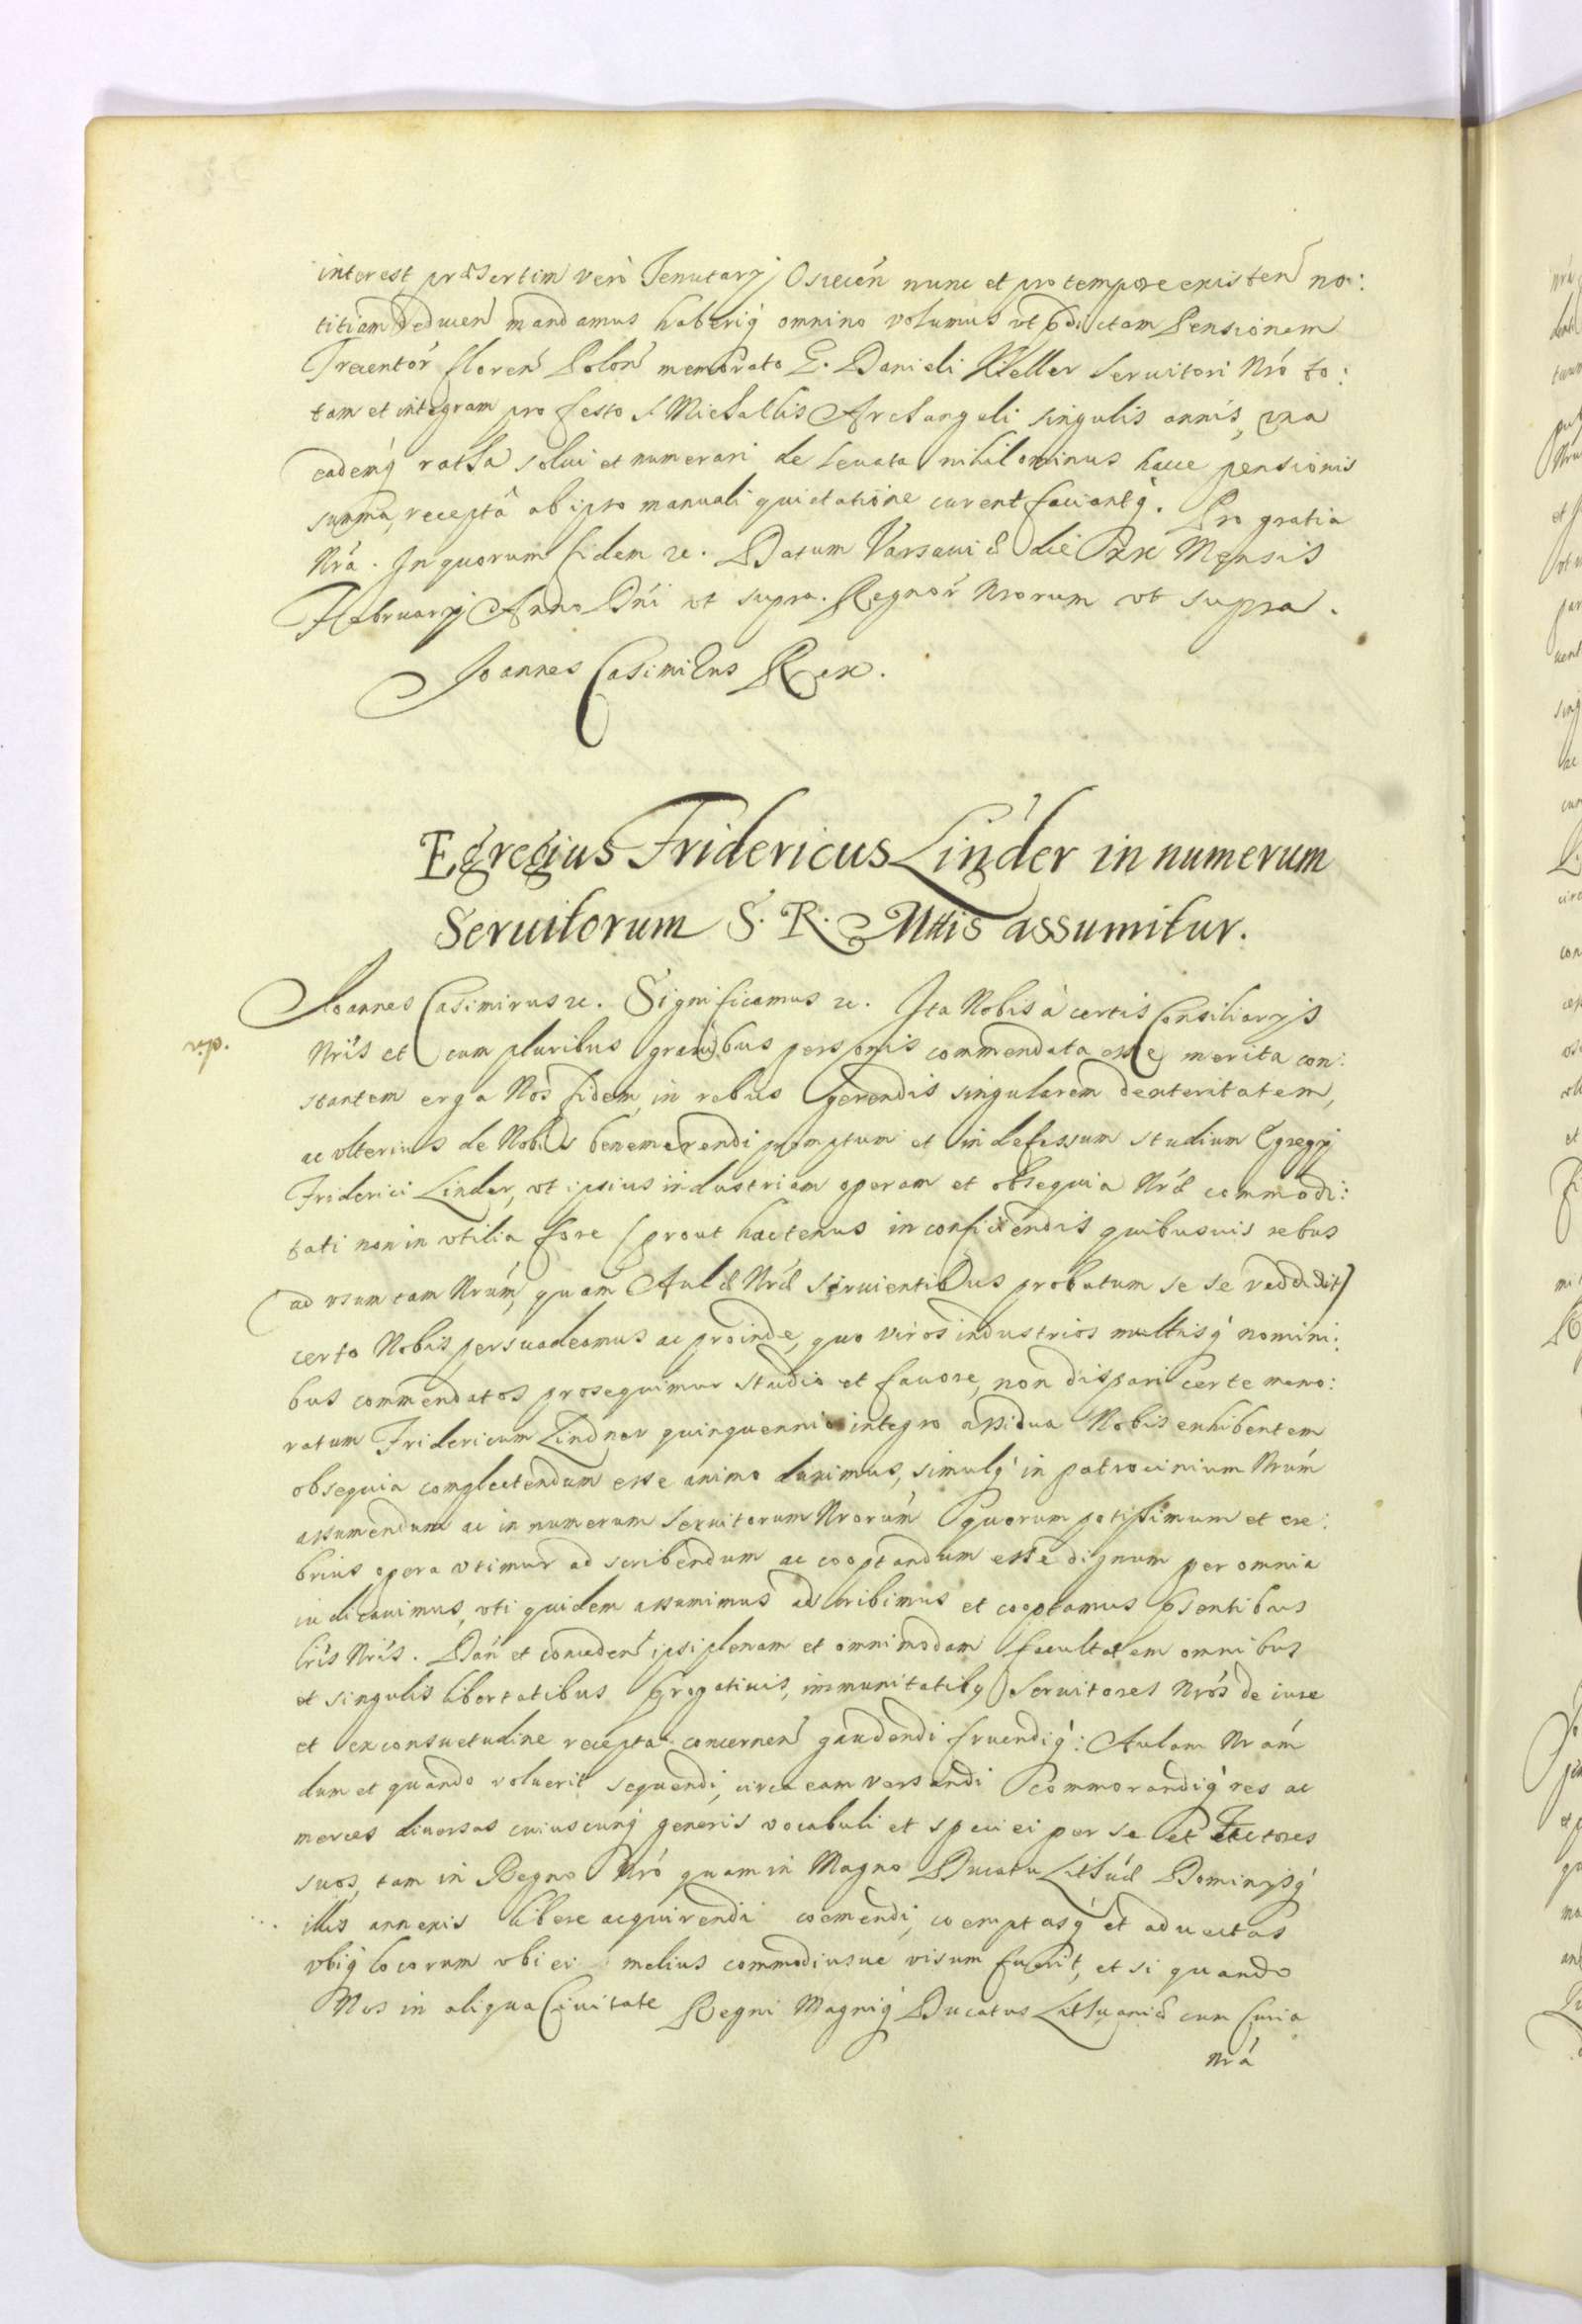 interest præsertim verò Tenutarij Osiecen nunc et pro tempore existen no:
titiam deducen mandamus haberiq omnino volumus vt pdictam Pensionem
Trecentor floren Polon memorato E. Danieli Weller Seruitori Nró to:
tam et integram pro festo S Michaelis Archangeli singulis annis, vna
eademq ratha solui et numerari de leuata nihilominus hacce pensionis
summa, receptâ ab ipso manuali quietatione curent faciantq. Pro gratia
Nrá. In quorum fidem &c. Datum Varsauiæ die Mensis
Februarij Anno Dni vt supra. Regnor Nrorum vt supra.
Joannes Casimirus Rex.
Egregius Fridericus Linder in numerum
Seruitorum S. R. Mttis assumitur.
Joannes Casimirus &c. Significamus &c. Ita Nobis à certis Consiliarijs
Nris et cum pluribus grauibus personis commendata esse merita con:
stantem erga Nos fidem, in rebus gerendis singularem dexteritatem,
ac vlterius de Nobis benemerendi promptum et indefessum studium Egregij
Friderici Linder, vt ipsius industriam operam et obsequia Nræ commodi:
tati non in vtilia fore (prout hactenus in conficiendis quibusuis rebus
ad vsum tam Nrum, quam Aulæ Nræ seruientibus probatum se se reddidit)
certo Nobis persuadeamus ac proinde, quo viros industrios multisq nomini:
bus commendatos prosequimur studio et fauore, non dispari certe memo:
ratum Fridericum Lindner quinquennio integro assidua Nobis exhibentem
obsequia complectendum esse animo duximus, simulq in patrocinium Nrum
assumendum ac in numerum Seruitorum Nrorum quorum potissimum et cre:
brius opera vtimur ad scribendum ac cooptandum esse dignum per omnia
iudicauimus, vti quidem assumimus adscribimus et cooptamus psentibus
lris Nris. Dan et conceden ipsi plenam et omnimodam facultatem omnibus
et singulis libertatibus progatiuis, immunitatibq Seruitores Nros de iure
et ex consuetudine recepta concernen gaudendi fruendiq: Aulam Nram
dum et quando voluerit sequendi, circa eam versandi commorandiq res ac
merces diuersas cuiuscunq generis vocabuli et speciei per se et
suos, tam in Regno Nró quam in Magno Ducatu Lithuæ Dominijsq
illis annexis libere acquirendi coemendi, coemptasq et aduectas
vbiq locorum vbi ei melius commodiusue visum fuerit, et si quando
Nos in aliqua Ciuitate Regni Magniq Ducatus Lithuaniæ cum Curia
Nrá